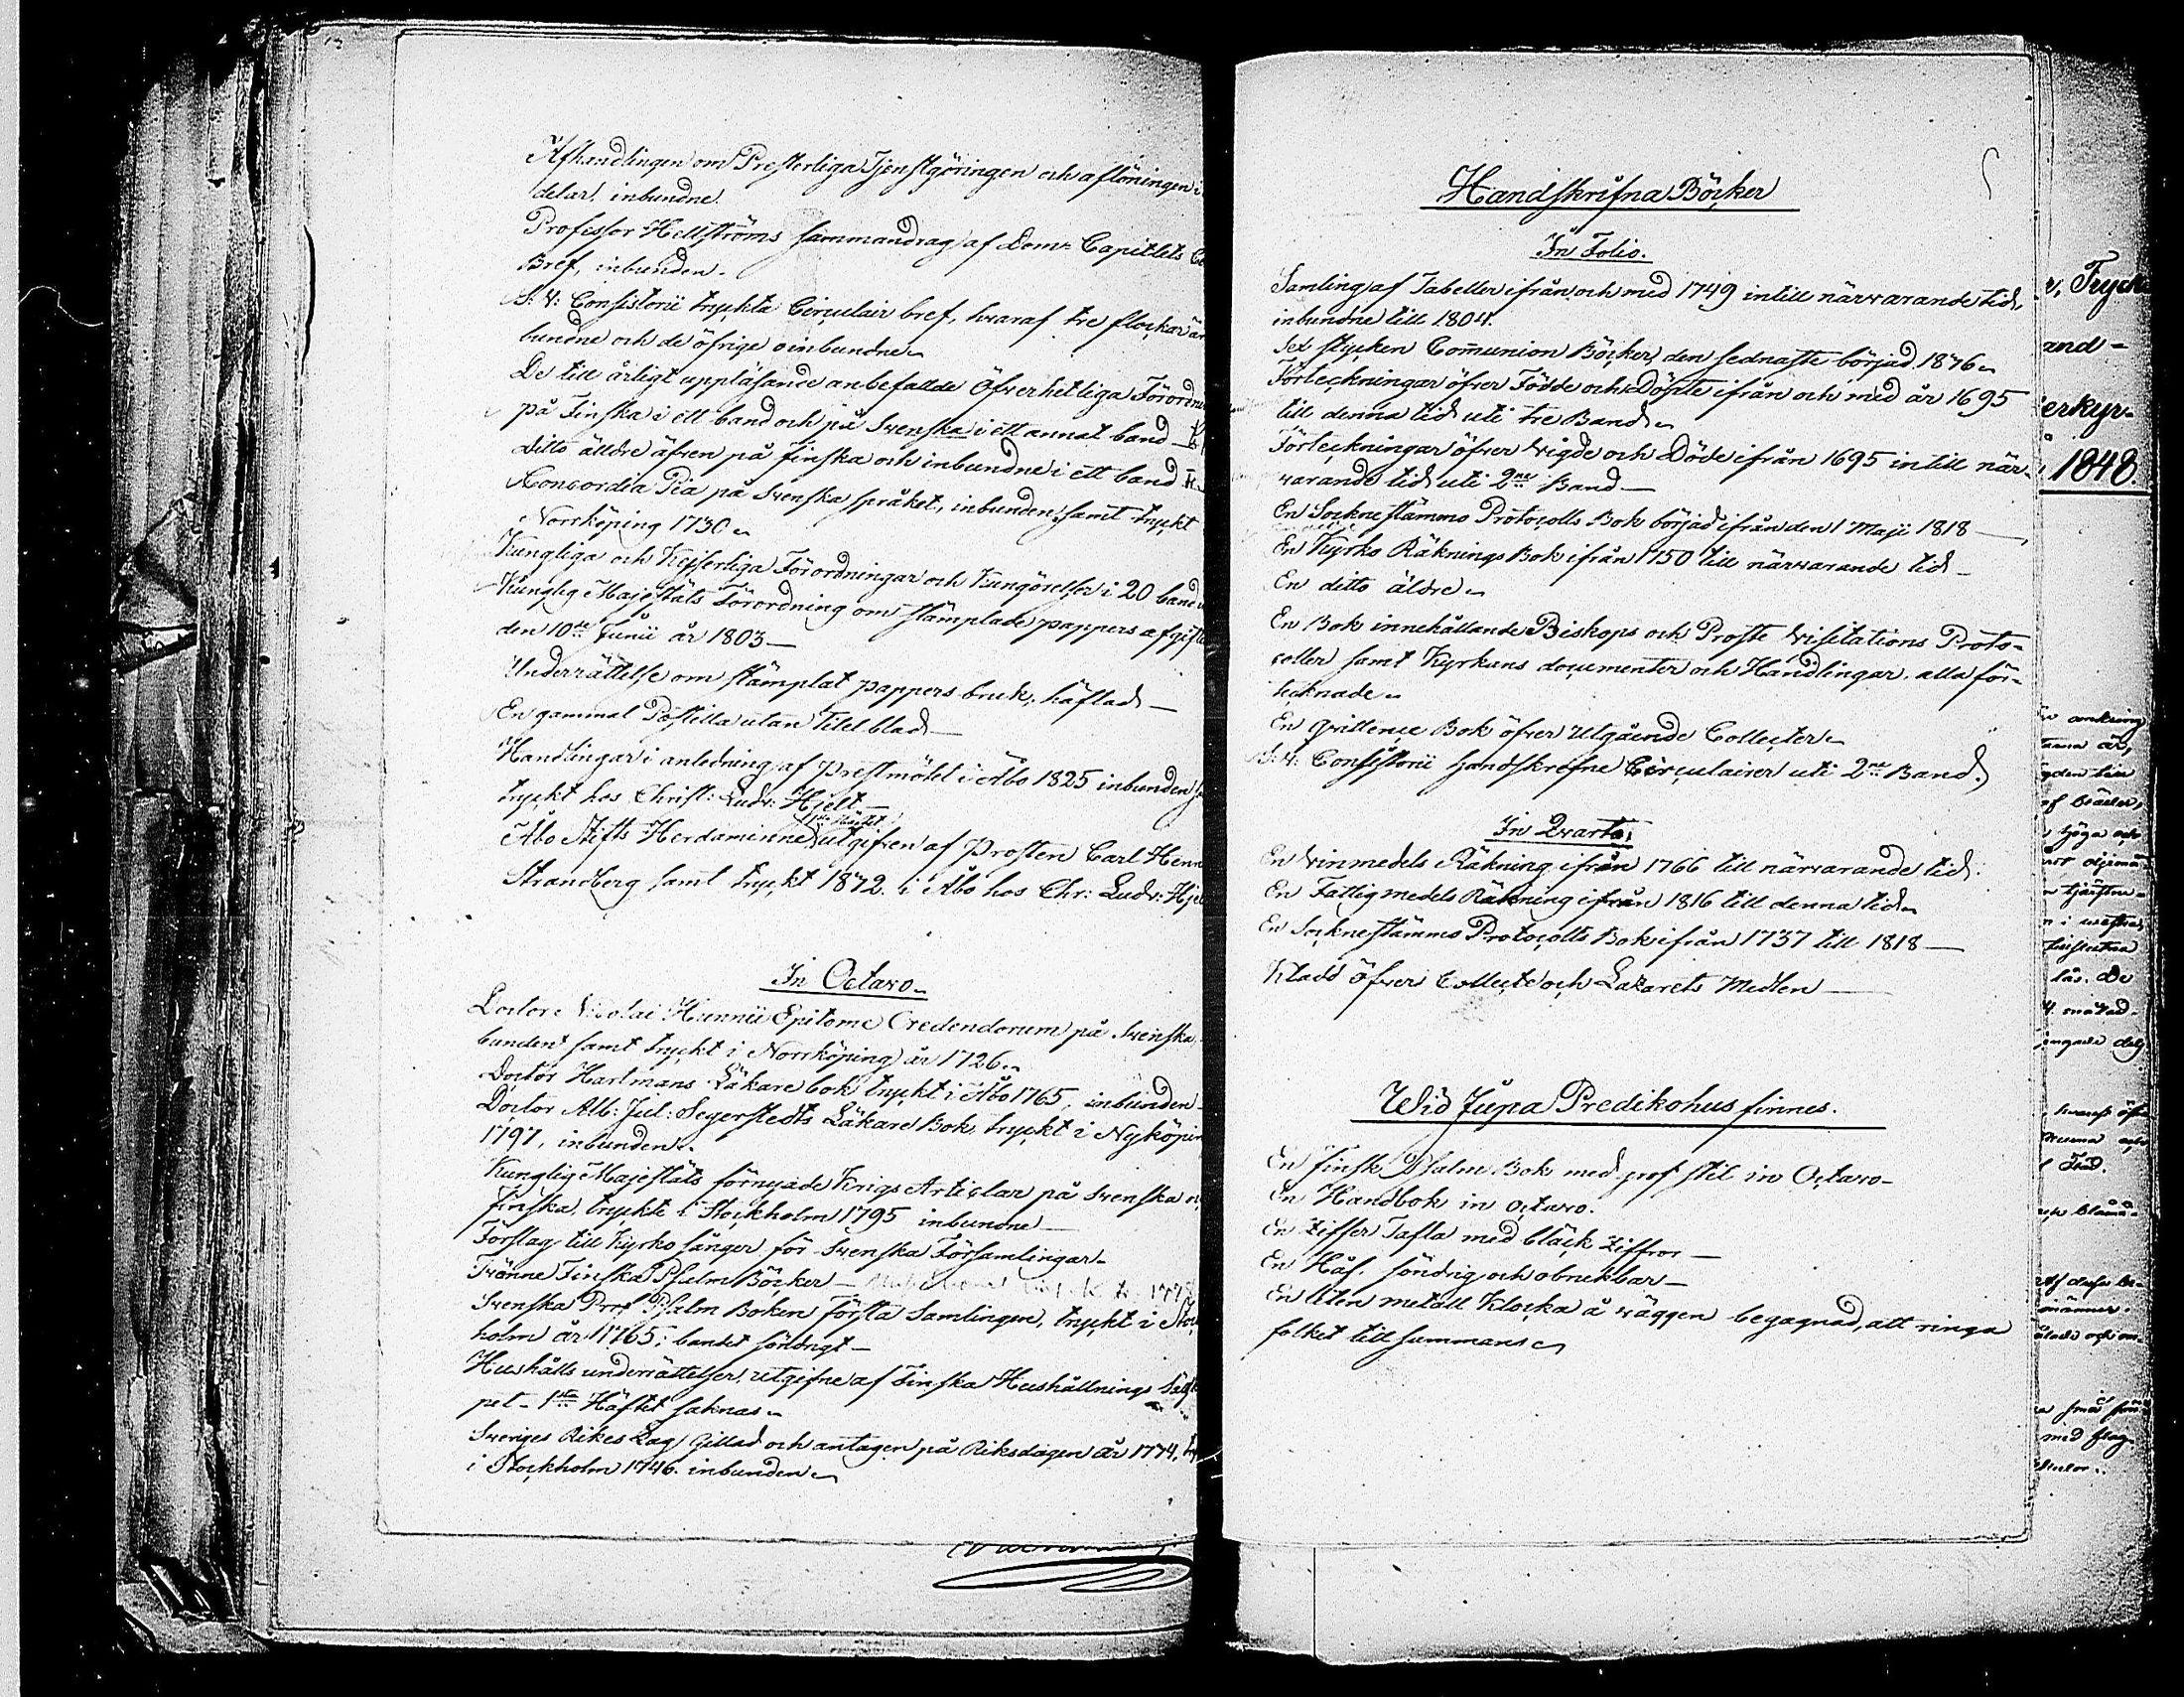 Afhandlingen om Presterliga Tjenstgöringen och aflöningen i
delar, inbundne.
Professor Hellströms sammandrag af Dom-Capitlets
Bref, inbunden.
S: V: Consistorii tryckta Circulair bref, hvaraf tre flockar är
bundne och de öfrige oinbundne
De till årligt uppläsande anbefallde Öfverhetliga Förordn
på Finska i ett band och på Svenska i ett annat band
ditto äldre äfven på finska och inbundne i ett band
Concordia Pia på Svenska språket, inbunden samt tryckt
Norrköping 1730
Kungliga och Kejserliga Förordningar och Kungörelser i 20 band
Kunglig Majestäts Förordning om stämplade pappers afgift
den 10de Junii år 1803 —
Underrättelse om stämplat pappers bruk, häftad —
En gammal Postilla utan Titel blad —
Handlingar i anledning af Prestmötet i Åbo 1825 inbunden
tryckt hos Christ: Ludv: Hjelt —
1sta Häftet
Åbo Stifts Herdaminne utgifven af Prosten Carl Henr
Strandberg samt tryckt 1832. i Åbo hos Chr: Ludv: Hjel
In Octavo
Doctor Nicolai Hunnii Epitome Credendorum på Svenska
bunden samt tryckt i Norrköping år 1726
Doctor Hartmans Läkare bok tryckt i Åbo 1765, inbunden
Doctor Alb: Jul: Segerstedts Läkare Bok, tryckt i Nyköpin
1797, inbunden.
Kunglig Majestäts förnyade Krigs Artiklar på Svenska o
finska, tryckte i Stockholm 1795 inbundne —
Förslag till Kyrko sånger för Svenska Församlingar
Tvänne Finska Psalm Böcker —
Svenska Prof Psalm Boken första Samlingen, tryckt i Stoc
holm år 1765; bandet söndrigt —
Hushålls underrättelser, utgifne af Finska Hushållnings Säll
pet - 1sta Häftet saknas
Sveriges Rikes Lag Gillad och antagen på Riksdagen år 1734, tr
i Stockholm 1746. inbunden
Handskrifna Böcker
In Folio.
Samling af Tabeller ifrån och med 1749 intill närvarande tid,
inbundne till 1804.
Sex stycken Communion Böcker, den sednaste börjad 1836
Förteckningar öfver Födde och Döpte ifrån och med år 1695
till denna tid uti tre Band
Förteckningar öfver vigde och Döde ifrån 1695 intill när-
varande tid uti 2ne Band —
En Sockne stämmo Protocolls Bok börjad ifrån den 1 Maji 1818 —
En Kyrko Räknings Bok ifrån 1750 till närvarande tid —
En ditto äldre
En Bok innehållande Biskops och Proste Visitations Proto-
coller samt Kyrkans documenter och Handlingar, alla för-
tecknade
En Qvittence Bok öfver Utgående Collecter
S: V: Consistorii handskrefne Circulairer uti 2ne Band.
In Qvarto.
En vinmedels Räkning ifrån 1766 till närvarande tid.
En Fattigmedels Räkning ifrån 1816 till denna tid
En Sockne stämmo Protocolls Bok ifrån 1737 till 1818 —
Kladd öfver Collecte och Lazarets Medlen —
Wid Jupa Predikohus finnes.
En finsk Psalm Bok med grof stil in Octavo
En Handbok in octavo.
En Ziffer Tafla med bläck Ziffror —
En Håf. söndrig och obrukbar —
En liten metall Klocka å väggen begagnad, att ringa
folket till sammans
Tryck
and -
erkyr-
1848.